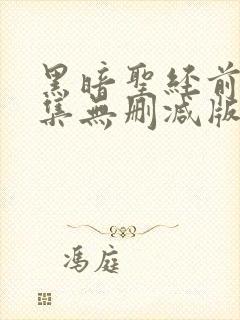 黑暗聖經前
集無刪減版
馮庭